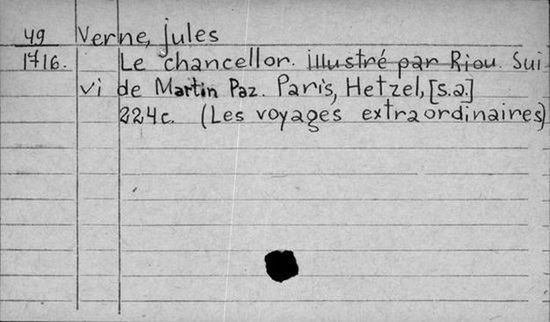 49 Verne, jules
1716. Le chancellor. illustré par Riou. Sui
vi de Martin Paz. Paris, Hetzel, [s.a.]
224c. (Les voyages extraordinaires)